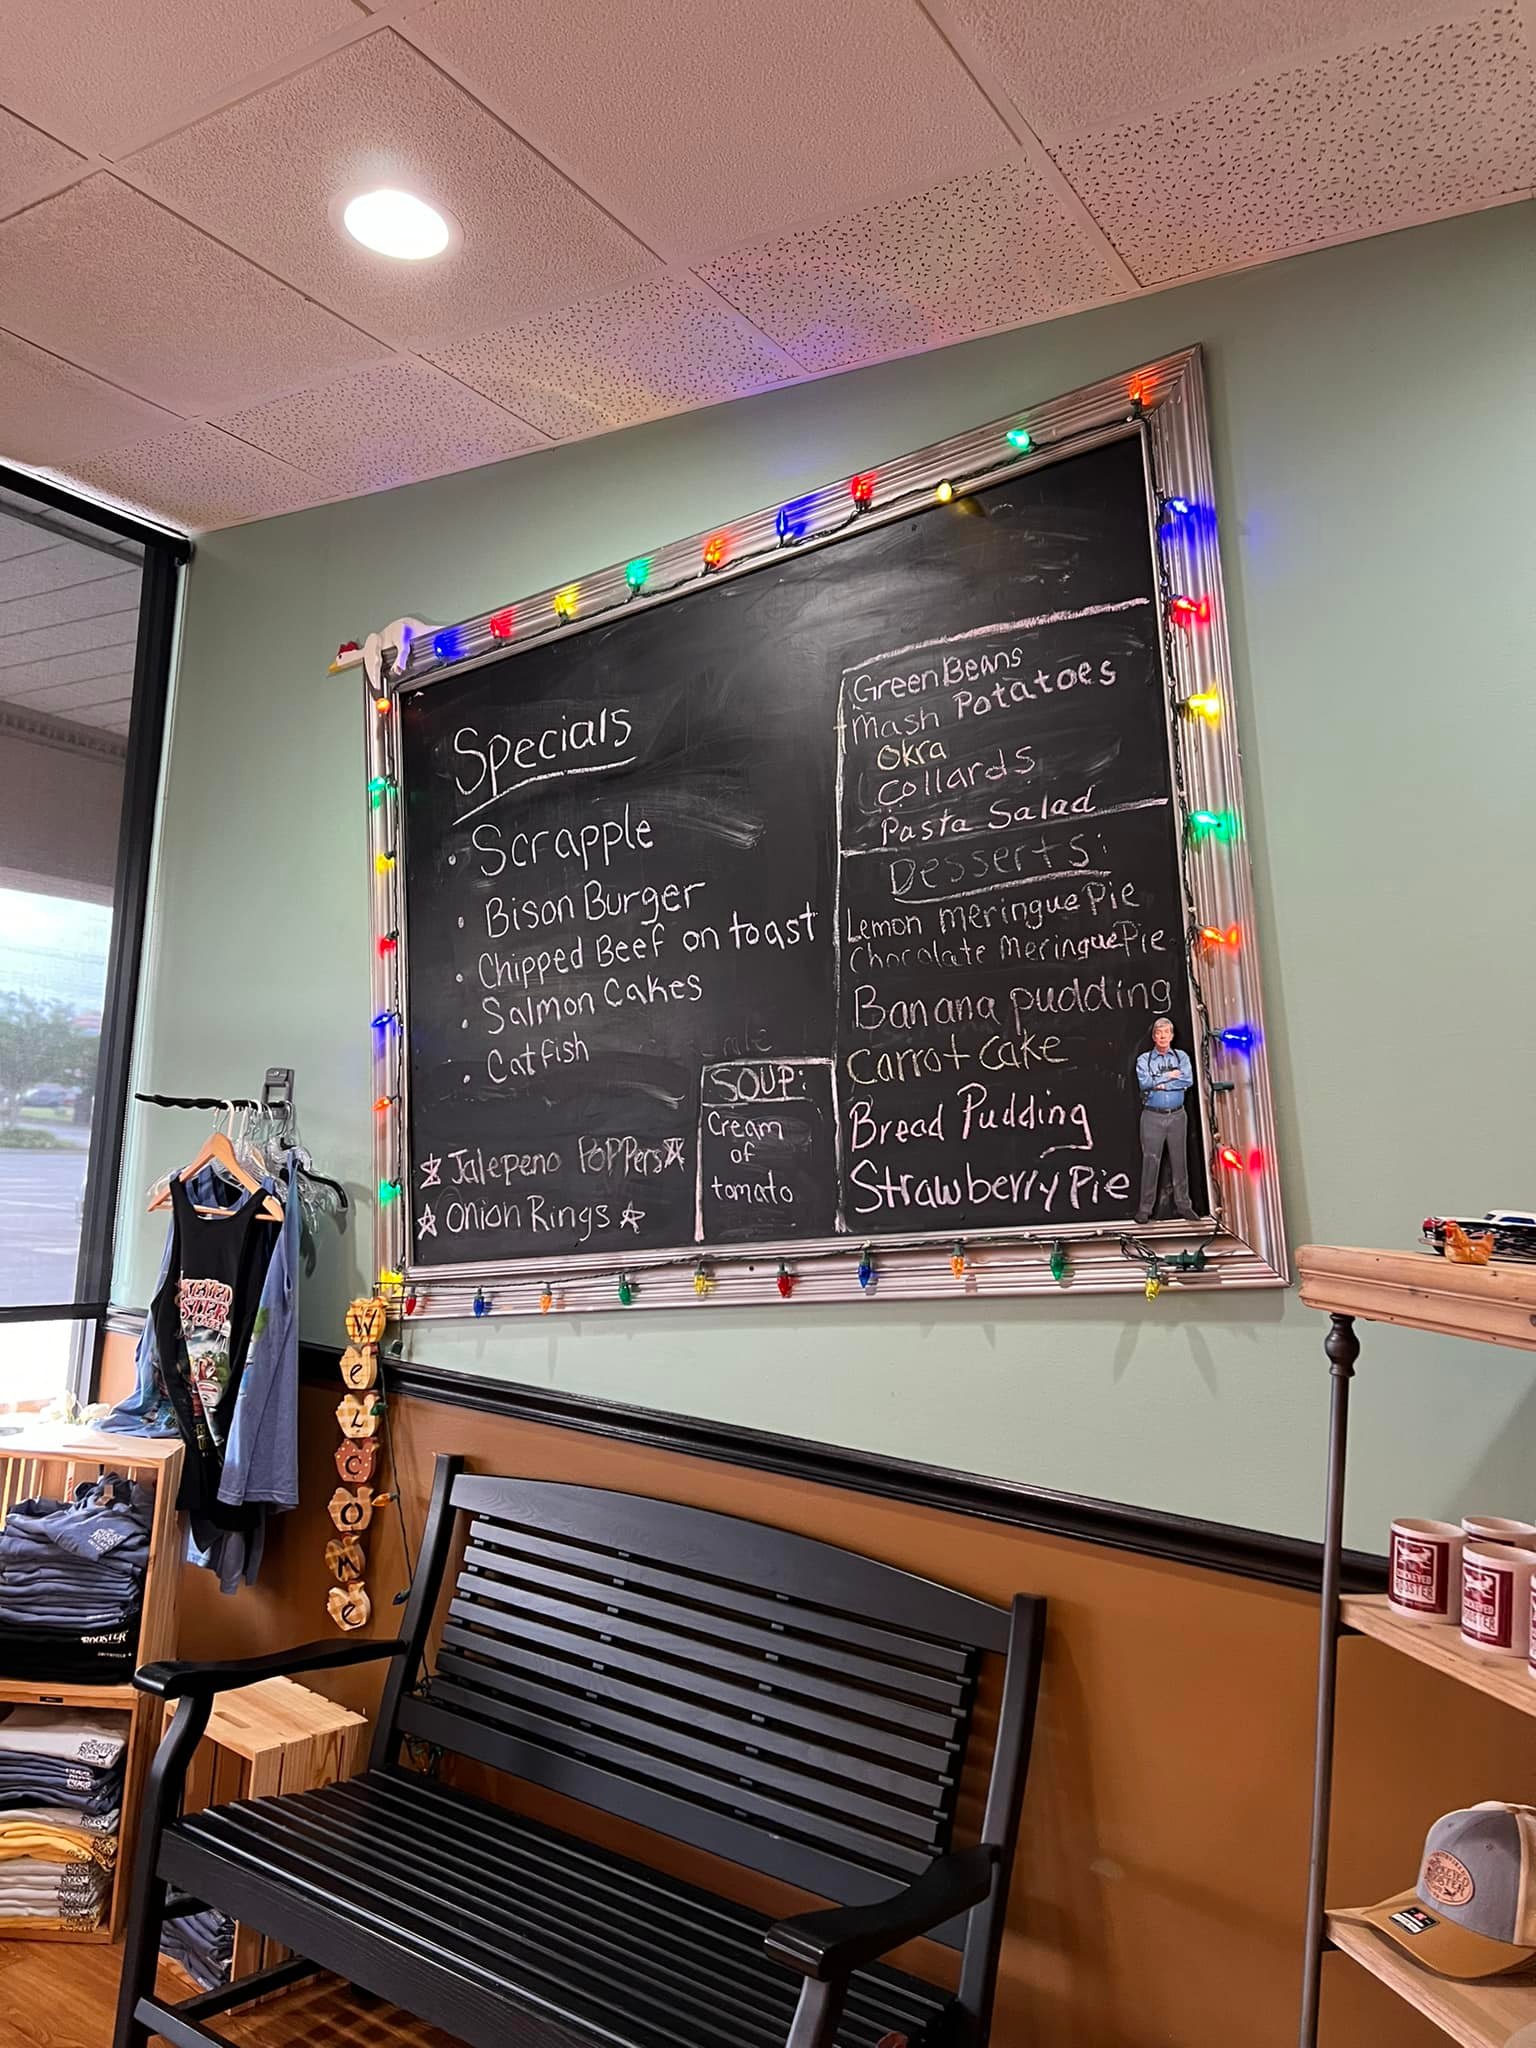 Specials
• Scrapple
• Bison Burger
• Chipped Beef on toast
• Salmon Cakes
• Catfish
Jalepeno Poppers
Onion Rings
SOUP:
Cream
of
tomato
Green Beans
Mash Potatoes
Okra
Collards
Pasta Salad
Desserts:
Lemon Meringue Pie
Chocolate Meringue Pie
Banana pudding
Carrot Cake
Bread Pudding
Strawberry Pie
WeLCOMe
ROOSTER
ROOSTER